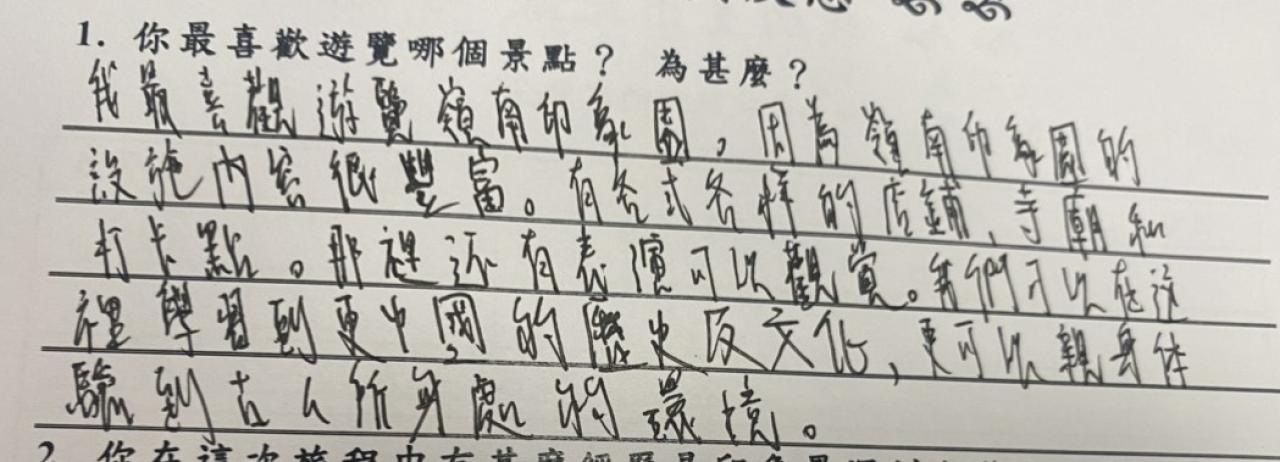 1. 你最喜歡遊覽哪個景點？ 為甚麼？
我最喜觀遊覽嶺南印象園。因為嶺南印象園的
設施內容很豐富。有各式各样的店鋪、寺廟和
打卡點。那裡还有表演可以觀賞。我們可以在這
裡學習到更中國的歷史及文化，更可以親身体
驗到古人所身處的環境。
2. 你在這次旅程中有甚麼經歷是印象最深刻